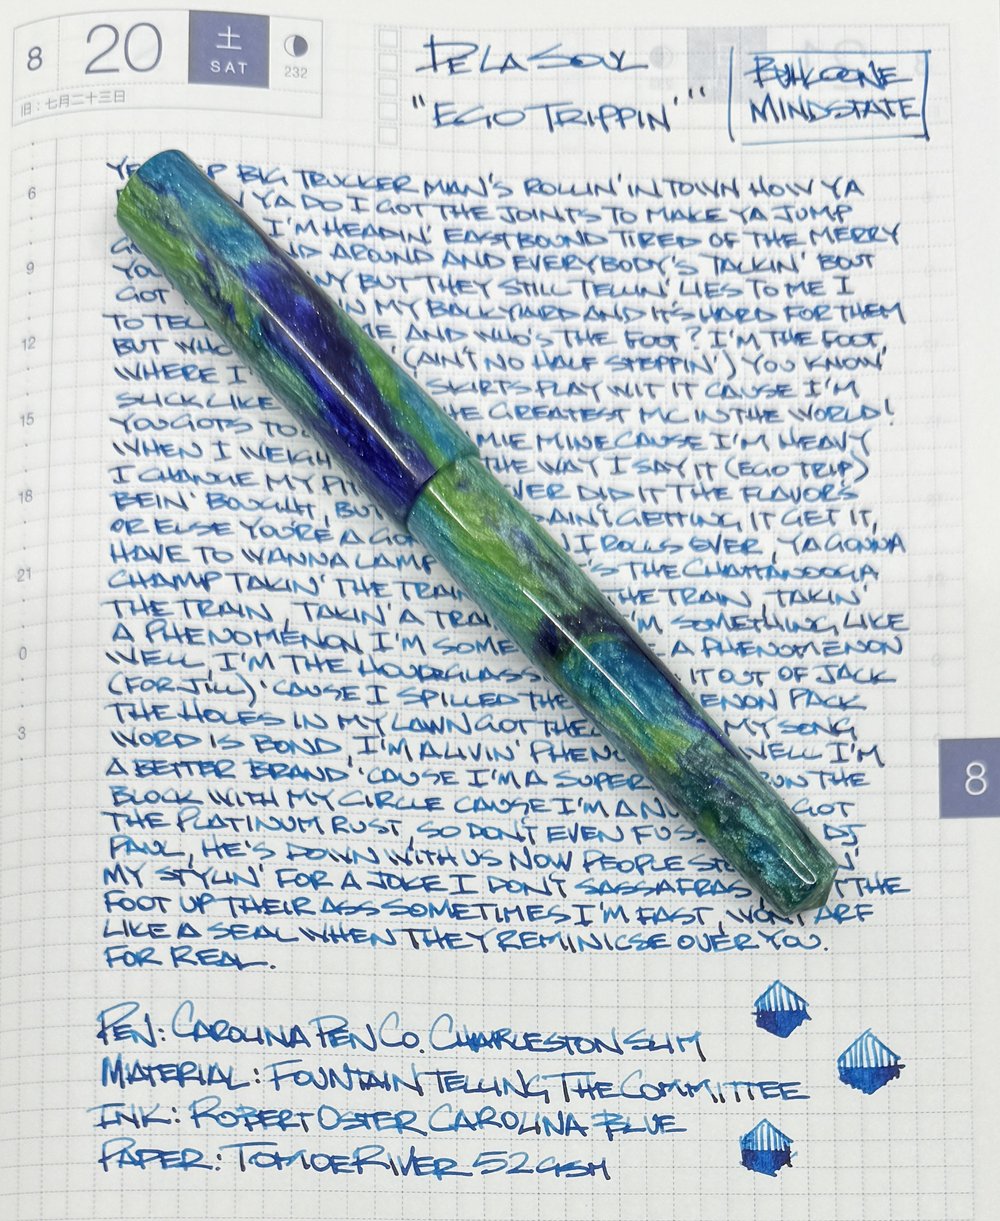 8 20 土 SAT 232
旧:七月二十三日
DE LA SOUL
"EGO TRIPPIN'"
BUHLOONE
MINDSTATE
BIG TRUCKER MAN'S ROLLIN' IN TOWN HOW YA
YA DO I GOT THE JOINTS TO MAKE YA JUMP
I'M HEADIN' EASTBOUND TIRED OF THE MERRY
AROUND AND EVERYBODY'S TALKIN' BOUT
YOU BUT THEY STILL TELLIN' LIES TO ME I
GOT IN MY BACKYARD AND IT'S HARD FOR THEM
TO AND WHO'S THE FOOT? I'M THE FOOT,
BUT (AIN'T NO HALF STEPPIN') YOU KNOW
WHERE SKIRTS PLAY WIT IT CAUSE I'M
SLICK LIKE GREATEST MC IN THE WORLD!
YOU GOTS TO MINE CAUSE I'M HEAVY
WHEN I WEIGH THE WAY I SAY IT (EGO TRIP)
I CHANGE MY DID IT THE FLAVOR'S
BEIN' BOUGHT, AIN'T GETTING IT GET IT,
OR ELSE YOU'RE A I ROLLS OVER, YA GONNA
HAVE TO WANNA THE CHATTANOOGA
CHAMP TAKIN' THE THE TRAIN, TAKIN'
THE TRAIN, TAKIN' A SOMETHING LIKE
A PHENOMENON I'M A PHENOMENON
WELL, I'M THE IT OUT OF JACK
(FOR JILL) 'CAUSE I SPILLED THE PACK
THE HOLES IN MY LAWN GOT MY SONG
WORD IS BOND, I'M A LIVIN' WELL I'M
A BETTER BRAND 'CAUSE I'M A SUPER THE
BLOCK WITH MY CIRCLE CAUSE I'M A GOT
THE PLATINUM RUST, SO DON'T EVEN DJ
PAUL, HE'S DOWN WITH US NOW PEOPLE
MY STYLIN' FOR A JOKE I DON'T SASSAFRAS THE
FOOT UP THEIR ASS SOMETIMES I'M FAST, WON'T ARF
LIKE A SEAL WHEN THEY REMINICSE OVER YOU.
FOR REAL.
6
9
12
15
18
21
0
3
8
PEN: CAROLINA PEN CO. CHARLESTON SLIM
MATERIAL: FOUNTAIN TELLING THE COMMITTEE
INK: ROBERT OSTER CAROLINA BLUE
PAPER: TOMOE RIVER 52 GSM